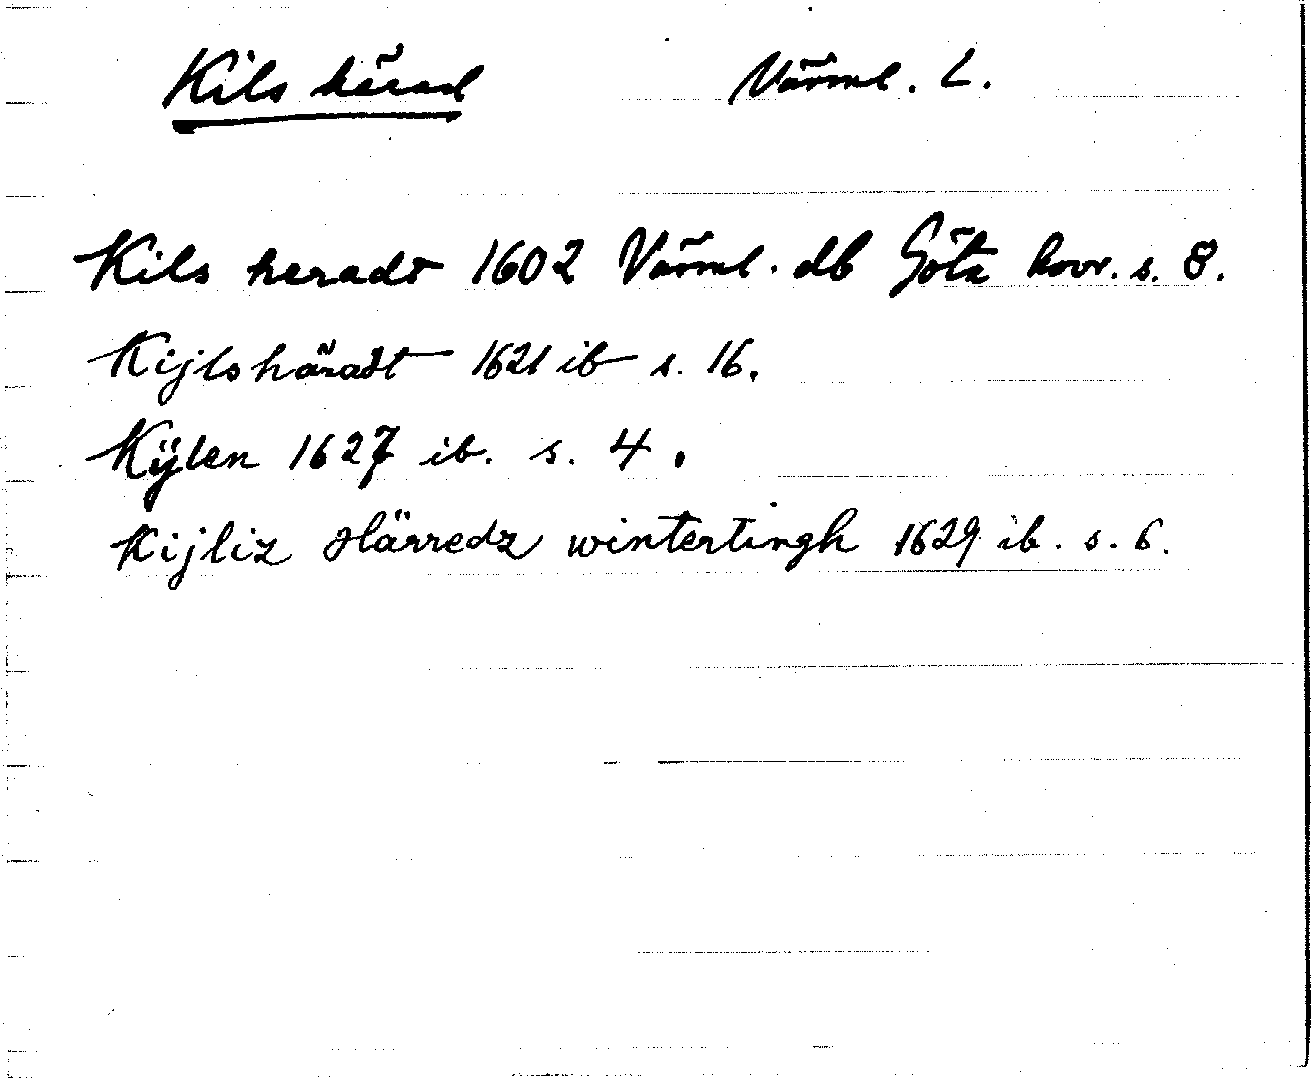 Kils härad Värml. L.
Kils heradt 1602 Värml. db Göta hovr. s. 8.
Kijlshäradt 1621 ib s. 16.
Kÿlen 1627 ib. s. 4.
Kijliz Härredz wintertingh 1629 ib. s. 6.